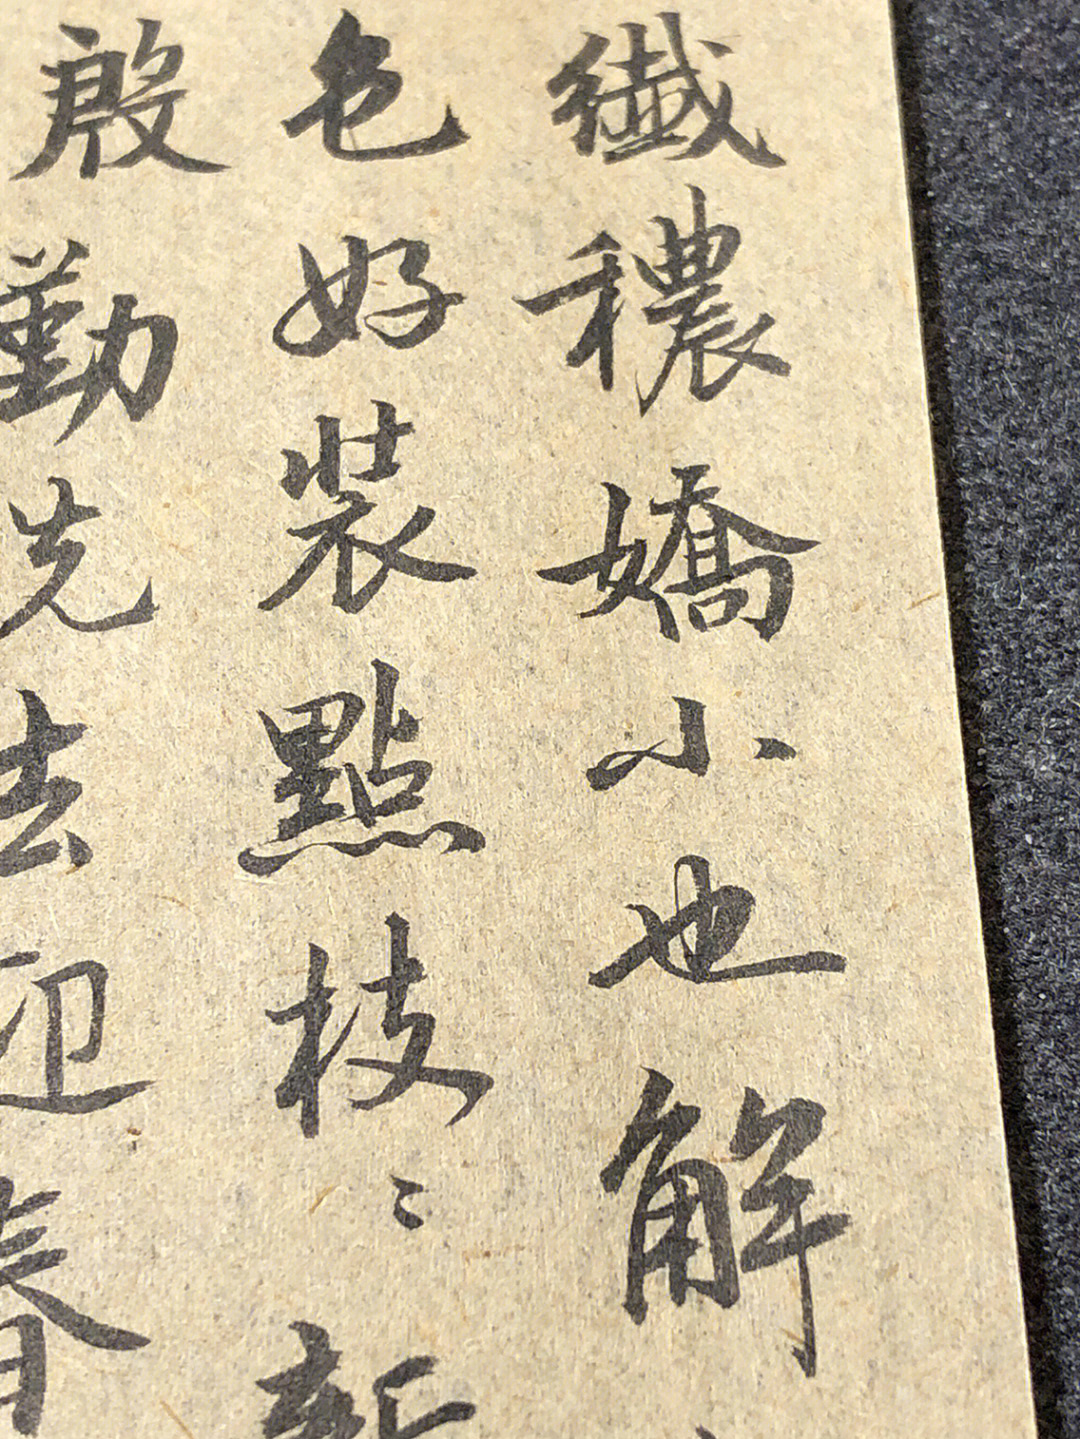 纖穠嬌小也解
色好裝點枝〻新
殷勤先去迎春